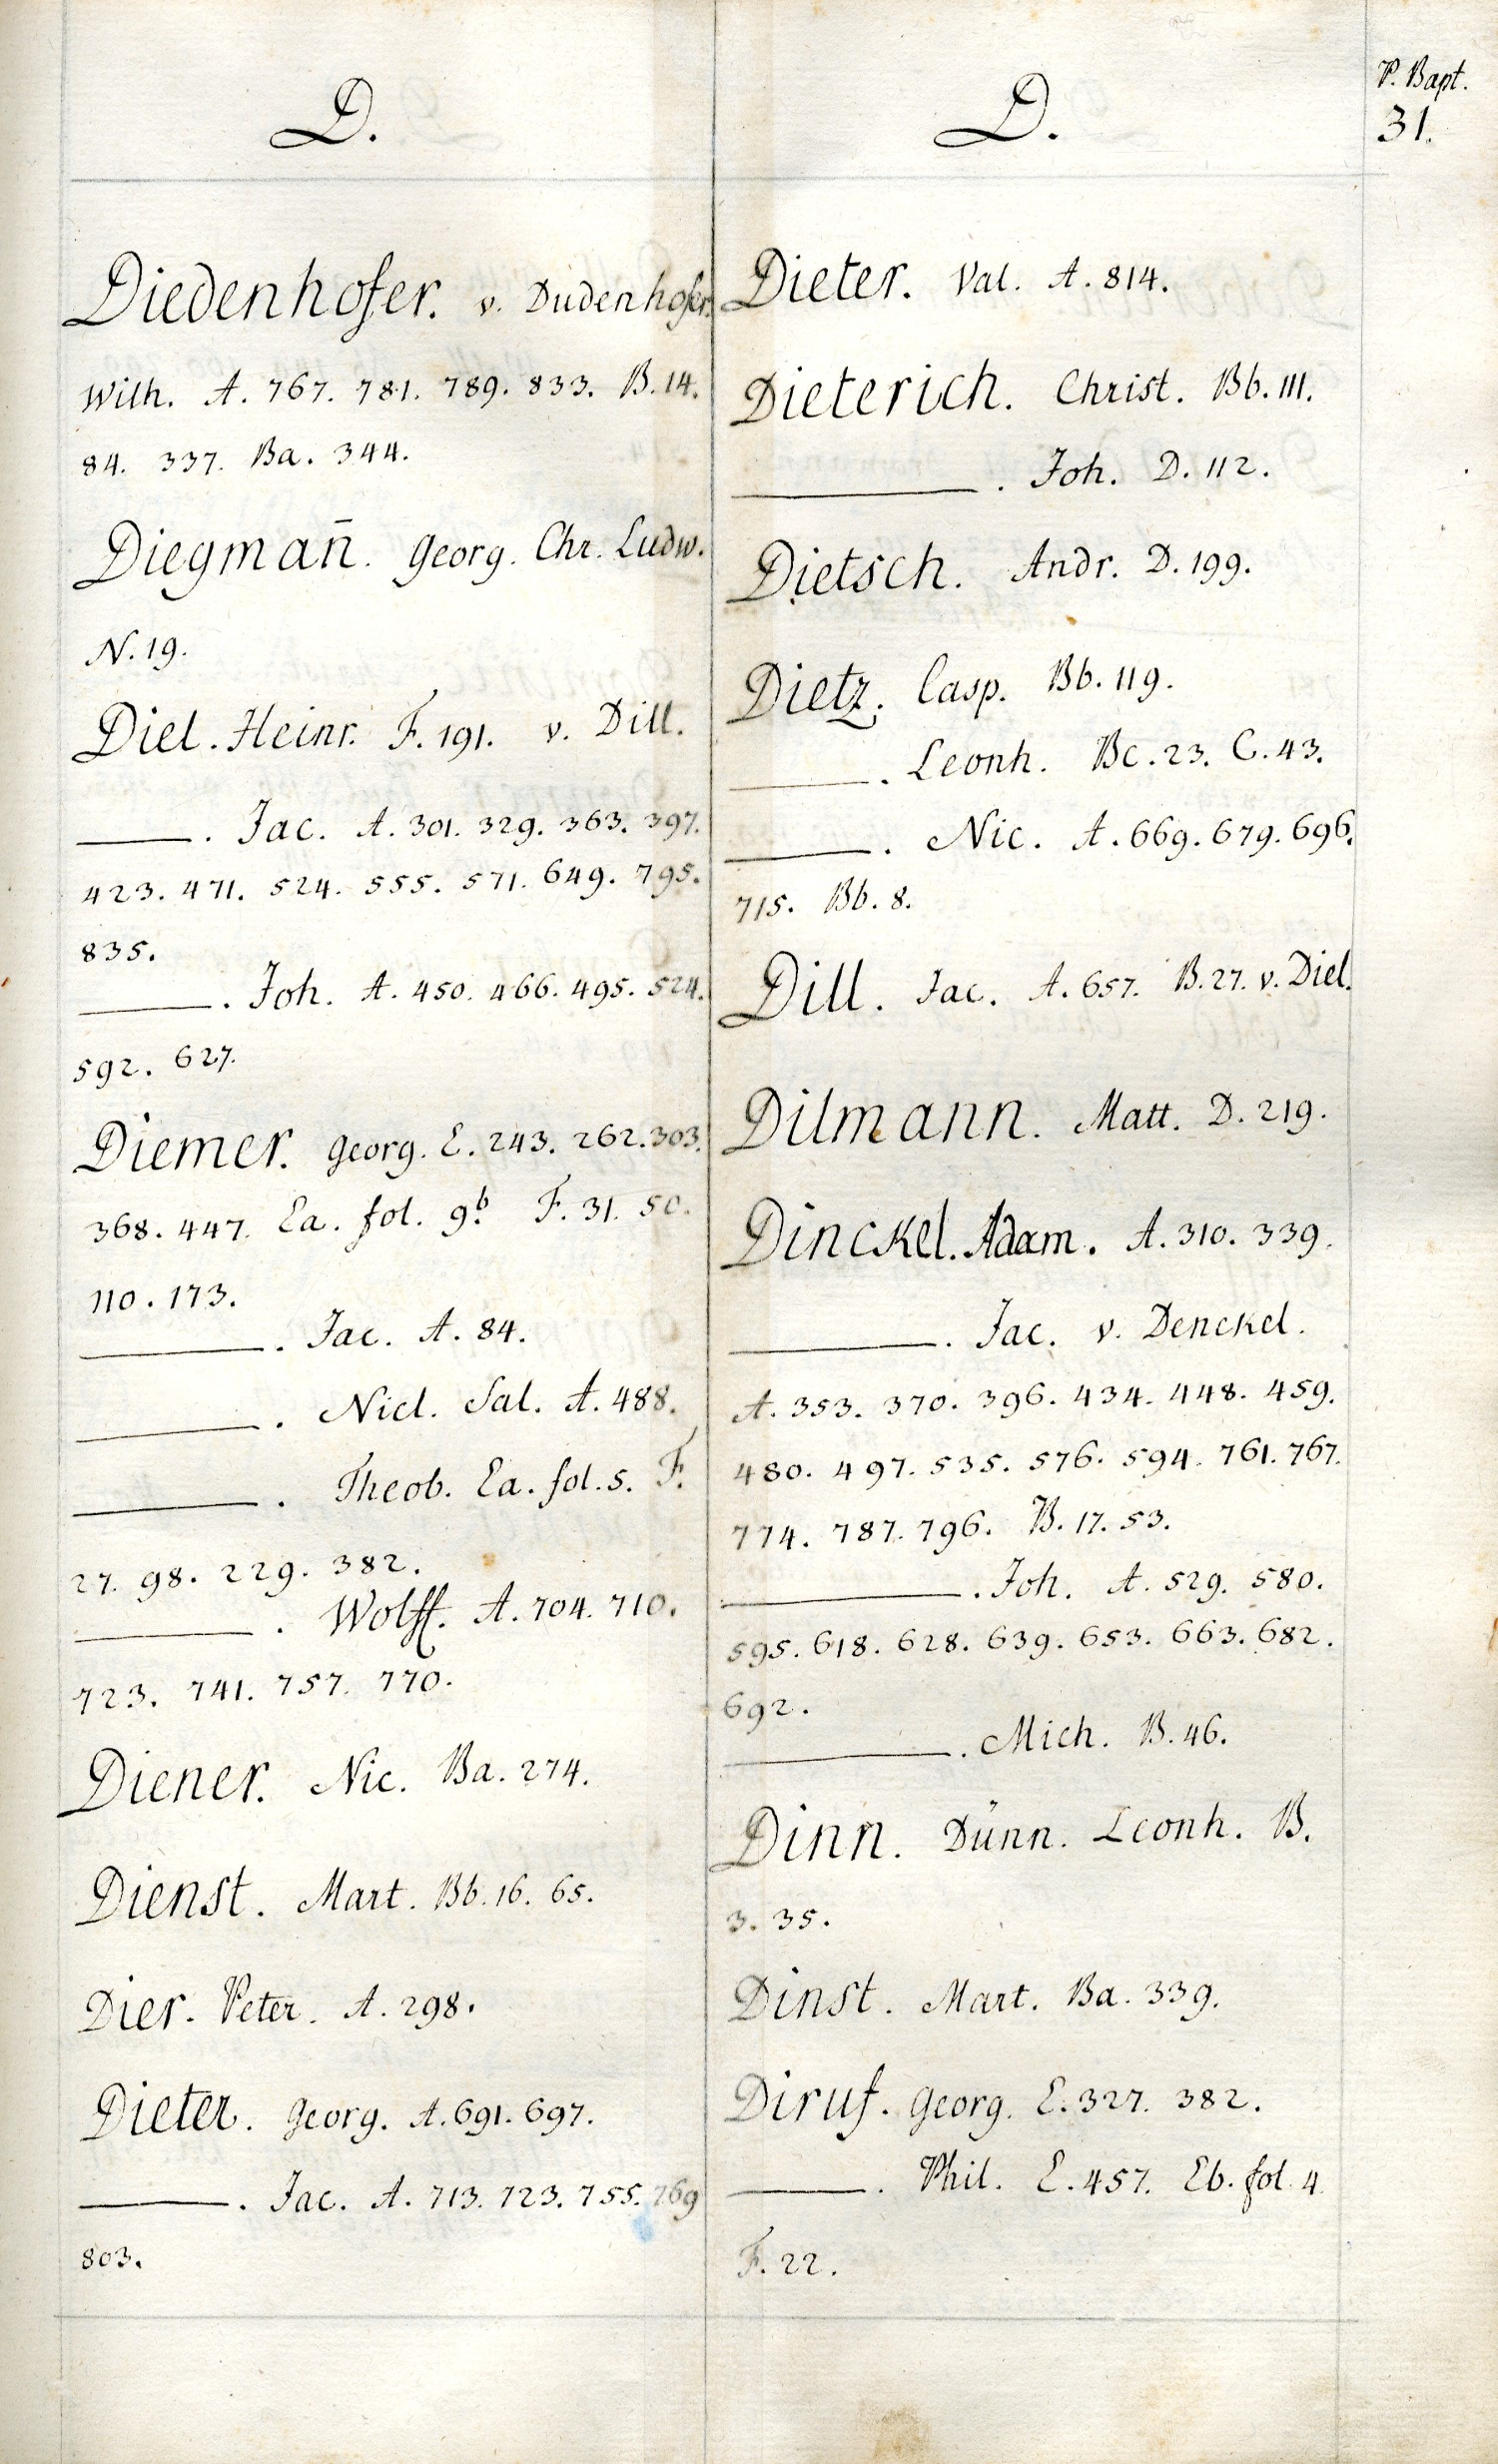 P. Bapt.
31.
D.
Diedenhofer. v. Dudenhofer.
Wilh. A. 767. 781. 789. 833. B. 14.
84. 337. Ba. 344.
Diegman̄. Georg. Chr. Ludw.
N. 19.
Diel. Heinr. F. 191. v. Dill.
———. Jac. A. 301. 329. 363. 397.
423. 471. 524. 555. 571. 649. 795.
835.
———. Joh. A. 450. 466. 495. 524.
592. 627.
Diemer. Georg. E. 243. 262. 303.
368. 447. Ea. fol. 9b. F. 31. 50.
110. 173.
———. Jac. A. 84.
———. Nicl. Sal. A. 488.
———. Theob. Ea. fol. 5. F.
27. 98. 229. 382.
———. Wolff. A. 704. 710.
723. 741. 757. 770.
Diener. Nic. Ba. 274.
Dienst. Mart. Bb. 16. 65.
Dier. Peter. A. 298.
Dieter. Georg. A. 691. 697.
———. Jac. A. 713. 723. 755. 769
803.
D.
Dieter. Val. A. 814.
Dieterich. Christ. Bb. 111.
———. Joh. D. 112.
Dietsch. Andr. D. 199.
Dietz. Casp. Bb. 119.
———. Leonh. Bc. 23. C. 43.
———. Nic. A. 669. 679. 696.
715. Bb. 8.
Dill. Jac. A. 657. B. 27. v. Diel.
Dilmann. Matt. D. 219.
Dinckel. Adam. A. 310. 339.
———. Jac. v. Denckel.
A. 353. 370. 396. 434. 448. 459.
480. 497. 535. 576. 594. 761. 767.
774. 787. 796. B. 17. 53.
———. Joh. A. 529. 580.
595. 618. 628. 639. 653. 663. 682.
692.
———. Mich. B. 46.
Dinn. Dünn. Leonh. B.
3. 35.
Dinst. Mart. Ba. 339.
Diruf. Georg. E. 327. 382.
———. Phil. E. 457. Eb. fol. 4
F. 22.